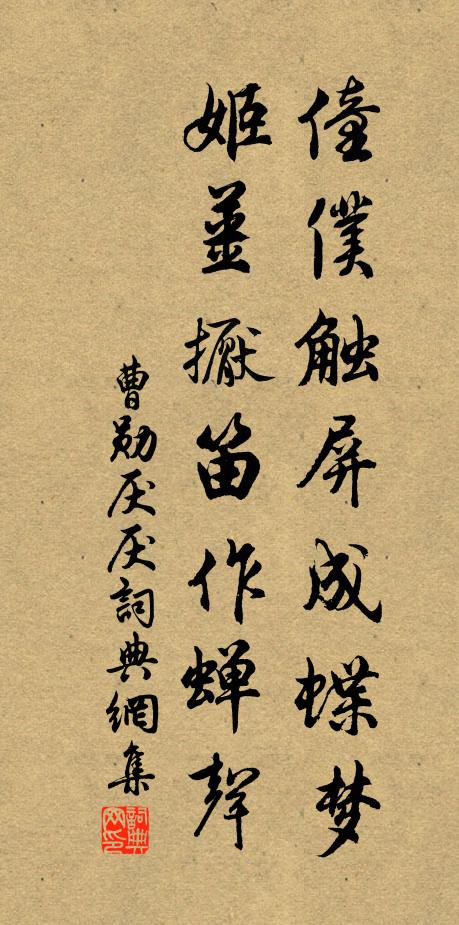 僮僕触屏成蝶梦
姬姜擫笛作蝉聲
曹勋厌厌詞典網集
詞典网印